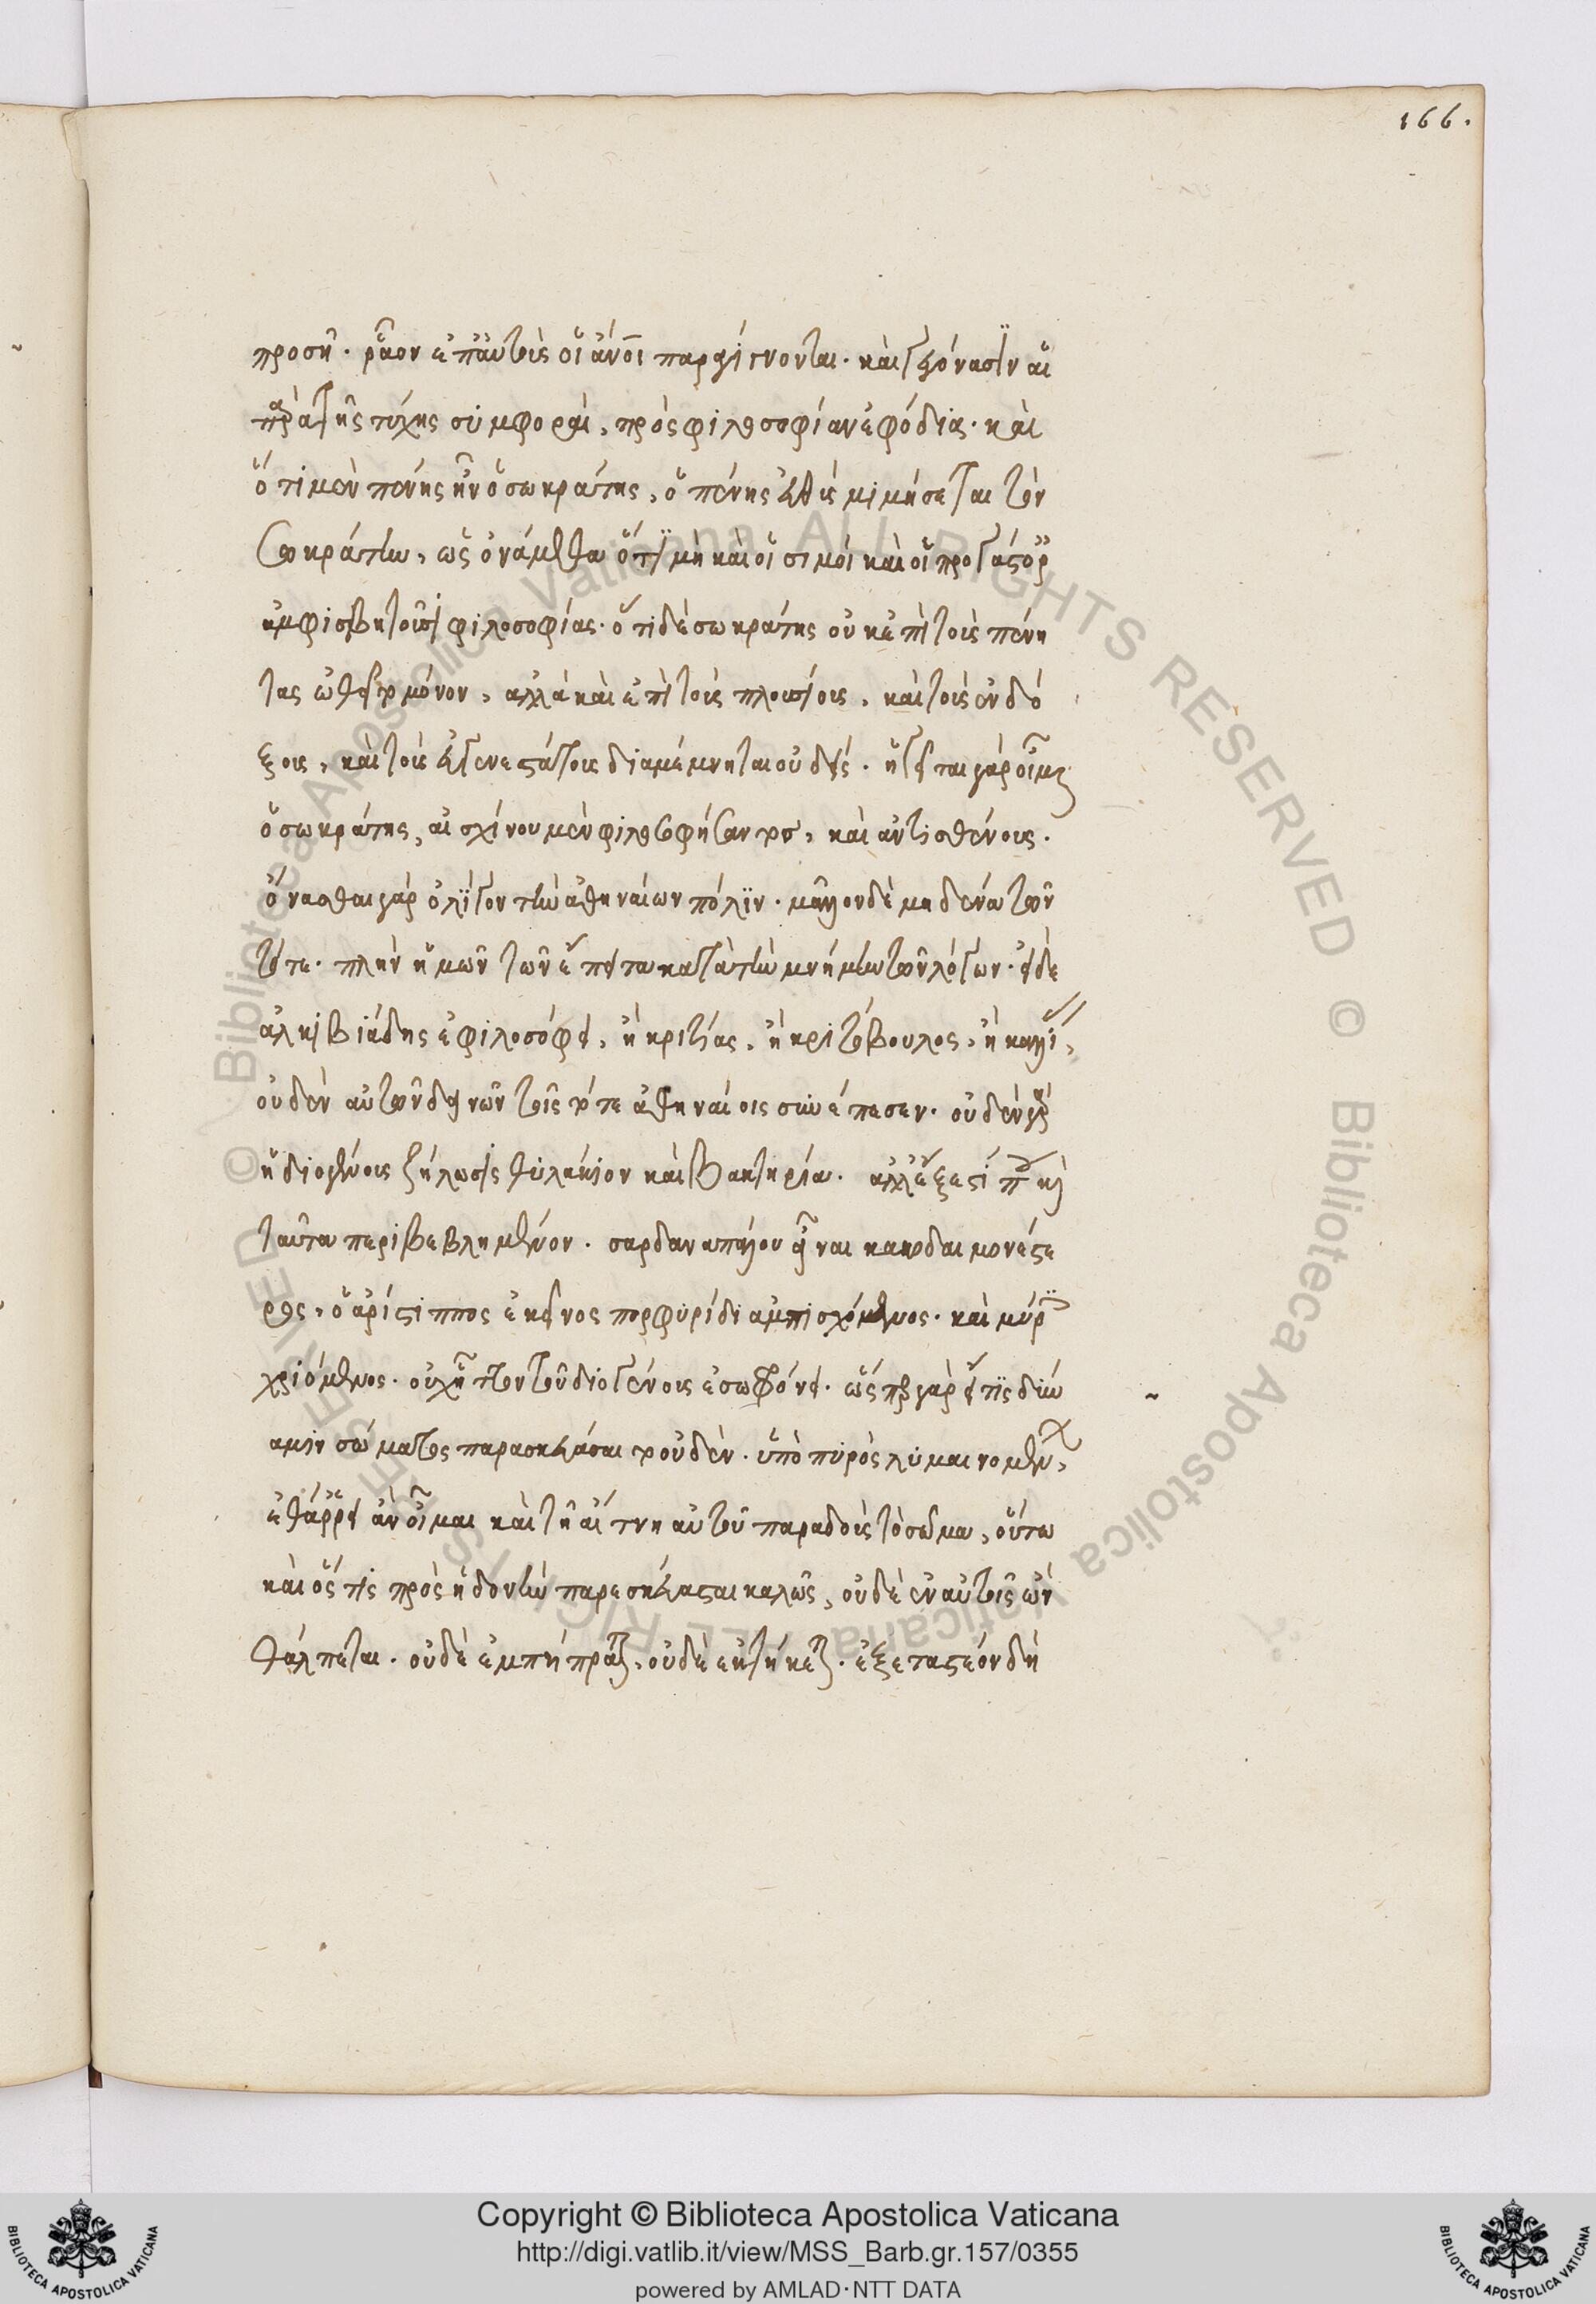 166.
προσῆ· ῥᾶον ἐπ' αὐτοὺς οἱ ἄνοι παραγίγνονται. καὶ γεγόνασιν αἱ
παρὰ τῆς τύχης συμφοραὶ, πρὸς φιλοσοφίαν ἐφόδια. καὶ
ὅτι μὲν πένης ἦν ὁ σωκράτης, ὁ πένης εὐθὺς μιμήσεται τὸν
Σωκράτην, ὡς ὀνάμεθα ὅτι μὴ καὶ οἱ σιμοὶ καὶ οἱ προγάστορες
ἀμφισβητοῦσι φιλοσοφίας. ὅτι δὲ σωκράτης οὐκ ἐπὶ τοὺς πένη
τας ὠθεῖτο μόνον, ἀλλὰ καὶ ἐπὶ τοὺς πλουσίους, καὶ τοὺς ἐνδό
ξους, καὶ τοὺς εὐγενεστάτους διαμέμνηται οὐδείς. ἡγεῖται γὰρ οἶμαι
ὁ σωκράτης, αἰσχίνου μὲν φιλοσοφήσαντος, καὶ ἀντισθένους.
ὄνασθαι γὰρ ὀλίγον τὴν ἀθηναίων πόλιν. μᾶλλον δὲ μηδένα τῶν
τότε. πλὴν ἡμῶν τῶν ἔπειτα κατὰ τὴν μνήμην τῶν λόγων. εἰ δὲ
ἀλκιβιάδης ἐφιλοσόφει, ἢ κριτίας, ἢ κριτόβουλος, ἢ καλλίας,
οὐδὲν αὐτῶν δεινῶν τοῖς τότε ἀθηναίοις συνέπεσεν. οὐδὲν γὰρ
ἡ διογένους ζήλωσις θυλάκιον καὶ βακτηρία. ἀλλ' ἔξεστί που καὶ
ταῦτα περιβεβλημένον. σαρδαναπάλλου εἶναι κακοδαιμονέστε
ρος, ὁ ἀρίστιππος ἐκεῖνος πορφυρίδι ἀμπισχόμενος. καὶ μύροις
χριόμενος. οὐχ ἧττον τοῦ διογένους ἐσωφρόνει. ὥσπερ γὰρ εἴ τις δύν
αμιν σώματος παρασκευάσαιτο οὐδὲν. ὑπὸ πυρὸς λυμαινομένην,
ἐθάρρει ἂν οἶμαι καὶ τῇ αἴτνῃ αὐτοῦ παραδοὺς τὸ σῶμα, οὕτω
καὶ ὅστις πρὸς ἡδονὴν παρεσκεύασται καλῶς, οὐδὲ ἐν αὐτοῖς ὢν
θάλπεται. οὐδὲ ἐμπίπραται, οὐδὲ ἐκτήκεται. ἐξεταστέον δὴ
Copyright © Biblioteca Apostolica Vaticana
http://digi.vatlib.it/view/MSS_Barb.gr.157/0355
powered by AMLAD·NTT DATA
BIBLIOTECA APOSTOLICA VATICANA
BIBLIOTECA APOSTOLICA VATICANA
© Biblioteca Apostolica Vaticana ALL RIGHTS RESERVED © Biblioteca Apostolica Vaticana ALL RIGHTS RESERVED